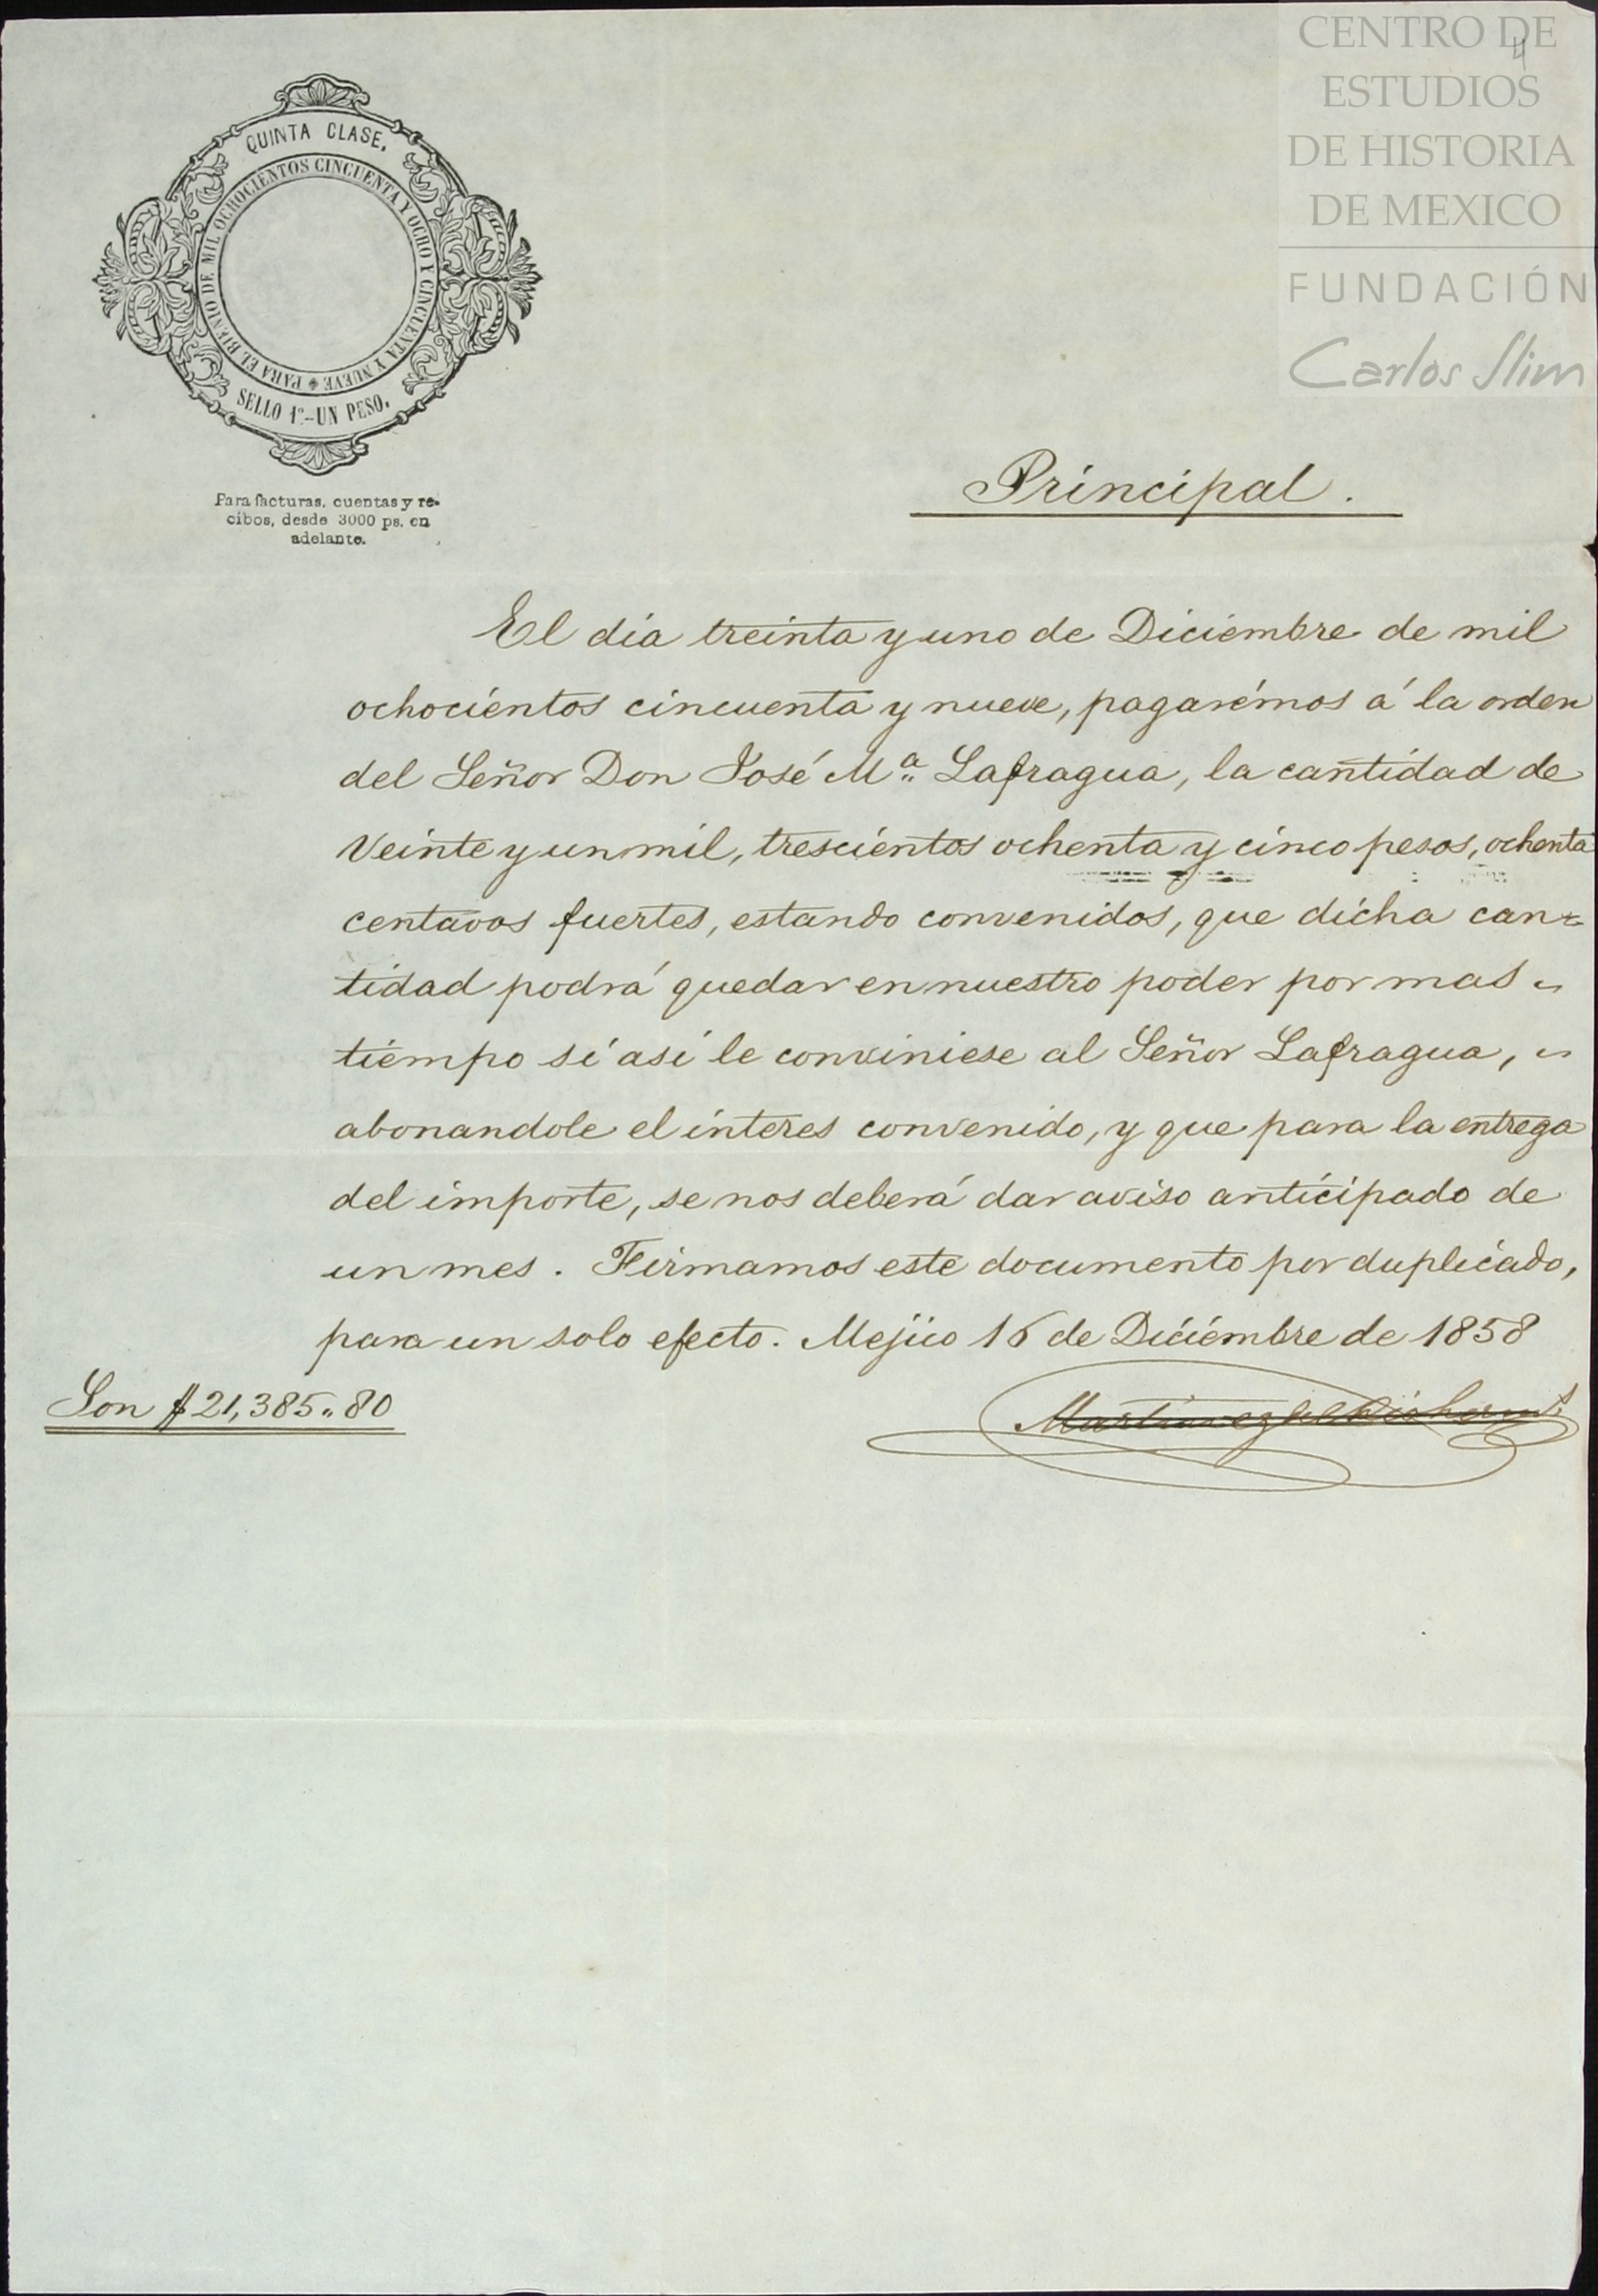 CENTRO DE
ESTUDIOS
DE HISTORIA
DE MEXICO
FUNDACIÓN
Carlos Slim
4
QUINTA CLASE.
PARA EL BIENIO DE MIL OCHOCIENTOS CINCUENTA Y OCHO Y CINCUENTA Y NUEVE
SELLO 1º.-UN PESO.
Para facturas, cuentas y re-
cibos, desde 3000 ps. en
adelante.
Principal.
El dia treinta y uno de Diciembre de mil
ochocientos cincuenta y nueve, pagarémos á la orden
del Señor Don José Mª Lafragua, la cantidad de
Veinte y un mil, trescientos ochenta y cinco pesos, ochenta
centavos fuertes, estando convenidos, que dicha can=
tidad podrá quedar en nuestro poder por mas
tiempo si asi le conviniese al Señor Lafragua,
abonandole el interes convenido, y que para la entrega
del importe, se nos deberá dar aviso anticipado de
un mes. Firmamos este documento por duplicado,
para un solo efecto. Mejico 16 de Diciembre de 1858
Son $21,385"80
Martinez del Rio herms